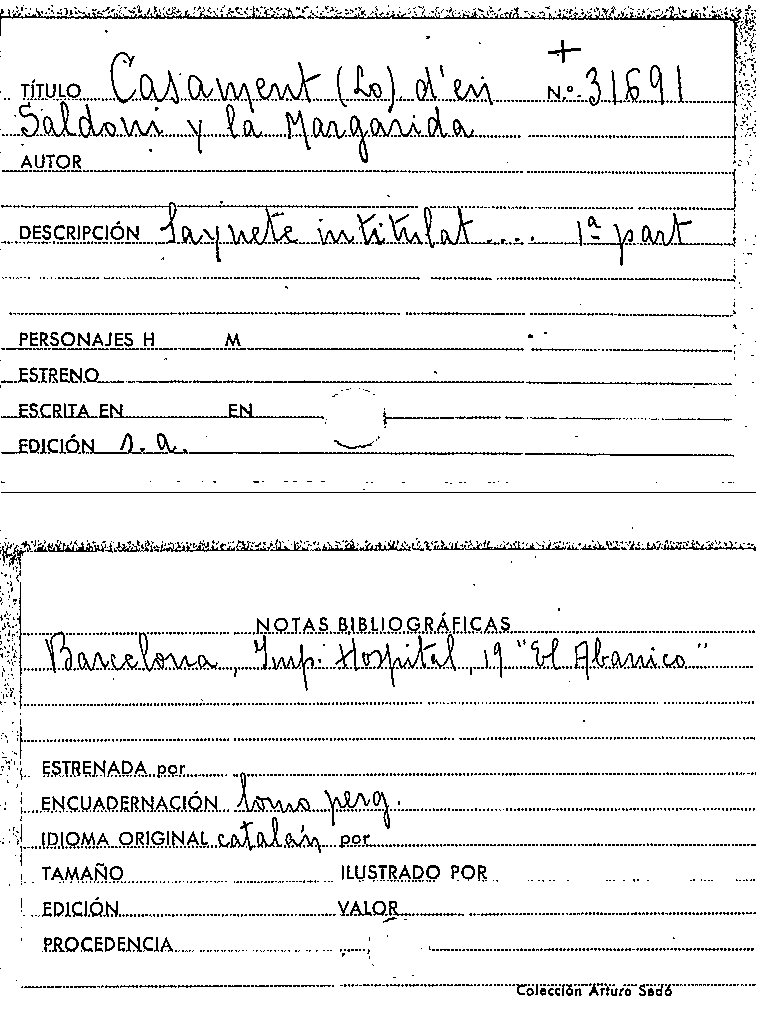 +
TÍTULO Casament (Lo) d'en Nº 31691
Saldoni y la Margarida
AUTOR
DESCRIPCIÓN Saynete intitulat.... 1ª part
PERSONAJES H M
ESTRENO
ESCRITA EN EN
EDICIÓN s.a.
NOTAS BIBLIOGRÁFICAS
Barcelona, Imp. Hospital, 19 "El Abanico"
ESTRENADA por
ENCUADERNACIÓN lomo perg.
IDIOMA ORIGINAL catalán por
TAMAÑO ILUSTRADO POR
EDICIÓN VALOR
PROCEDENCIA
Colección Arturo Sedó